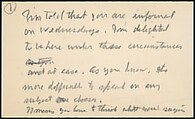 1
I'm told that you are informal
on Wednesdays. I'm delighted
to be here under those circumstances
and at ease. As you know, it's
more difficult to speak on any
subject chosen.
you have to think what